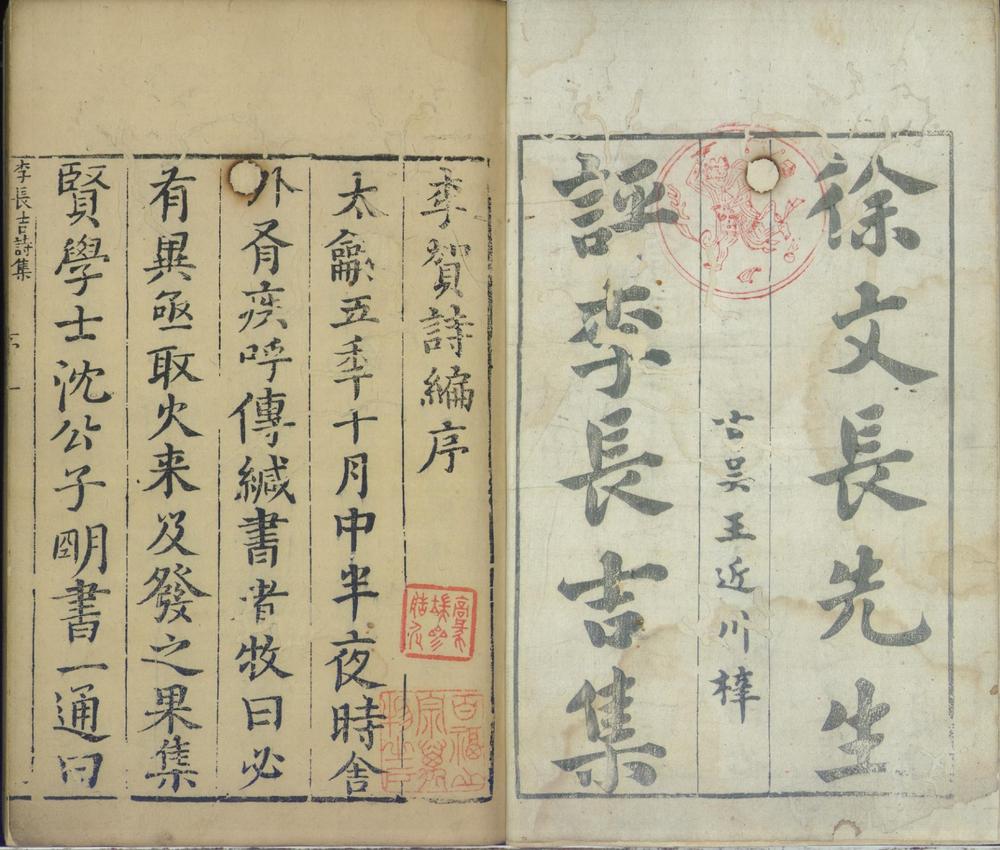 徐文長先生
古吴王近川梓
評李長吉集
李賀詩編序
太龢五年十月中半夜時舍
外有疾呼傳緘書者牧曰必
有異亟取火来及發之果集
賢學士沈公子明書一通曰
李長吉詩集
序
一